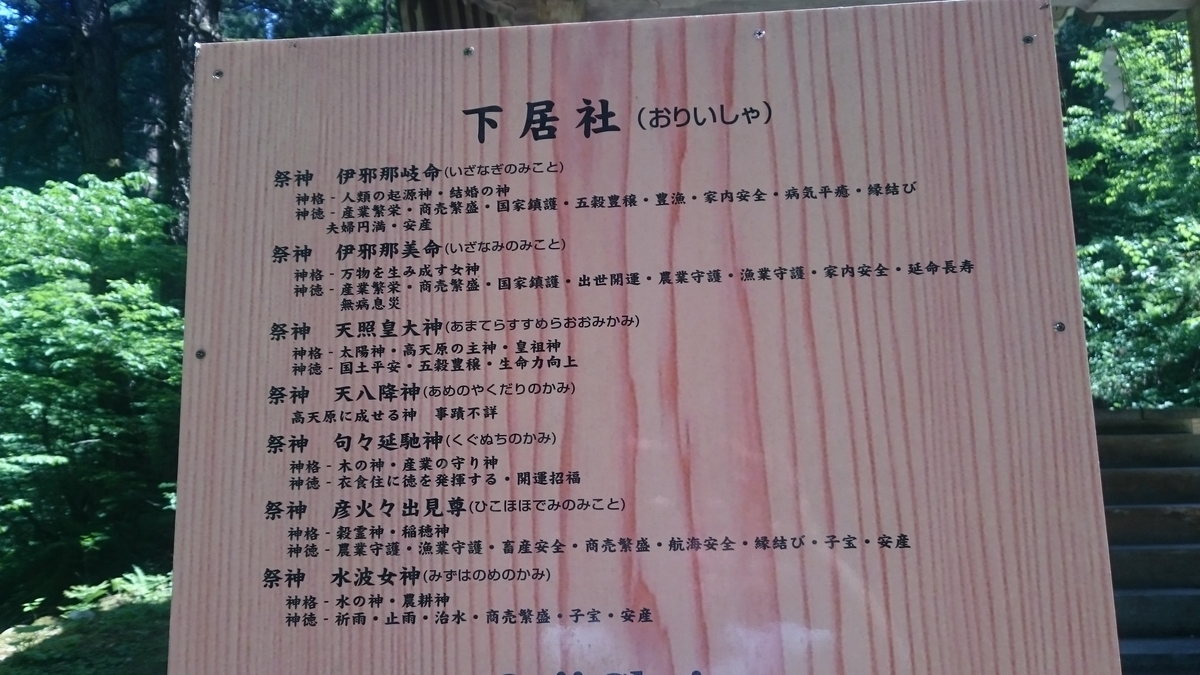 下居社(おりいしゃ)
祭神 伊邪那岐命(いざなぎのみこと)
神格-人類の起源神・結婚の神
神徳-産業繁栄・商売繁盛・国家鎮護・五穀豊穣・豊漁・家内安全・病気平癒・縁結び
夫婦円満・安産
祭神 伊邪那美命(いざなみのみこと)
神格-万物を生み成す女神
神徳-産業繁栄・商売繁盛・国家鎮護・出世開運・農業守護・漁業守護・家内安全・延命長寿
無病息災
祭神 天照皇大神(あまてらすすめらおおみかみ)
神格-太陽神・高天原の主神・皇祖神
神徳-国土平安・五穀豊穣・生命力向上
祭神 天八降神(あめのやくだりのかみ)
高天原に成せる神 事蹟不詳
祭神 句々延馳神(くぐぬちのかみ)
神格-木の神・産業の守り神
神徳-衣食住に徳を発揮する・開運招福
祭神 彦火々出見尊(ひこほほでみのみこと)
神格-穀霊神・稲穂神
神徳-農業守護・漁業守護・畜産安全・商売繁盛・航海安全・縁結び・子宝・安産
祭神 水波女神(みずはのめのかみ)
神格-水の神・農耕神
神徳-祈雨・止雨・治水・商売繁盛・子宝・安産